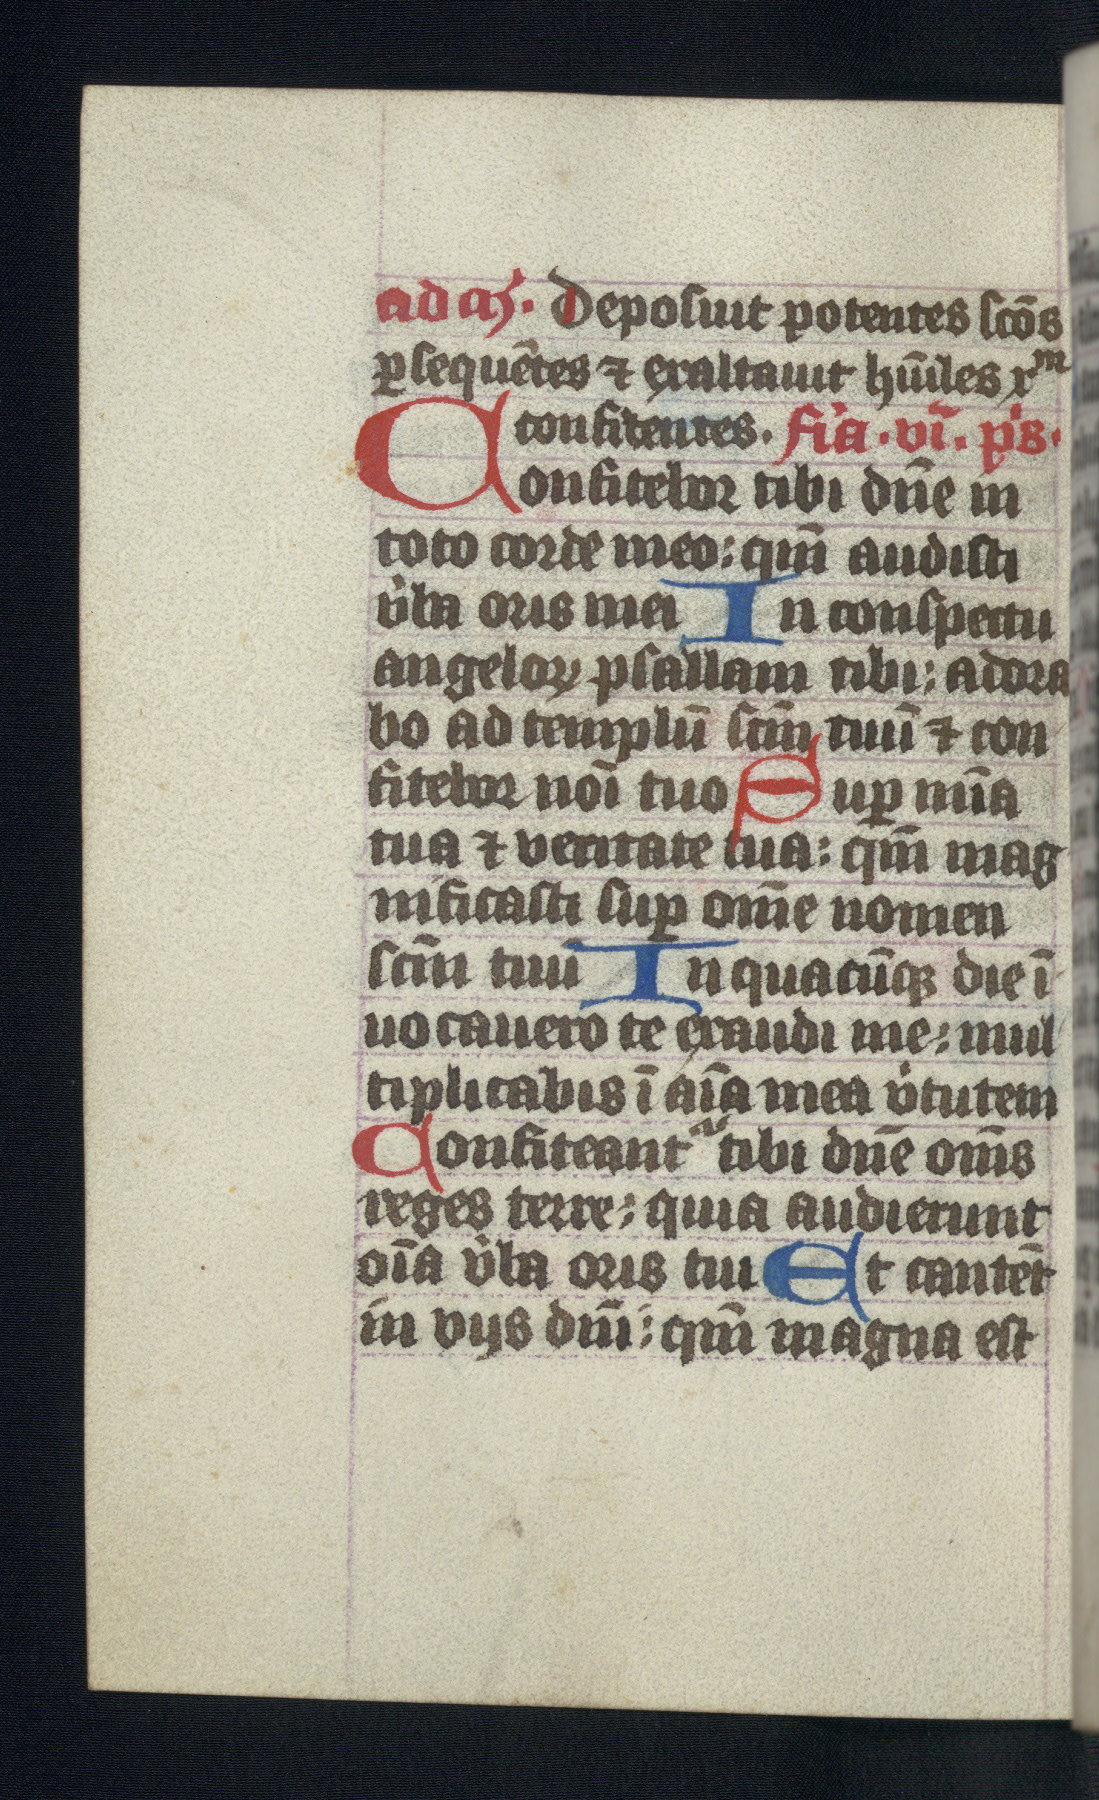 ad aꝫ. Deposuit potentes scōs
ꝑsequētes ⁊ exaltauit hūiles xᵐ
confitentes. fi'a. vi. p's.
Confitebor tibi dn̄e in
toto corde meo: qm̄ audisti
v̓ba oris mei In conspectu
angeloꝝ psallam tibi: adora
bo ad templū scm̄ tuū ⁊ con
fitebor noī tuo Suꝑ mīa
tua ⁊ veritate tua: qm̄ mag
nificasti suꝑ om̄e nomen
scm̄ tuū In quacūqꝫ die ī
uocauero te exaudi me: mul
tiplicabis ī aīa mea v̓tutem
Confiteantᵘʳ tibi dn̄e om̄s
reges terre: quia audierunt
oīa v̓ba oris tui Et cantēt
in vijs dm̄i: qm̄ magna est